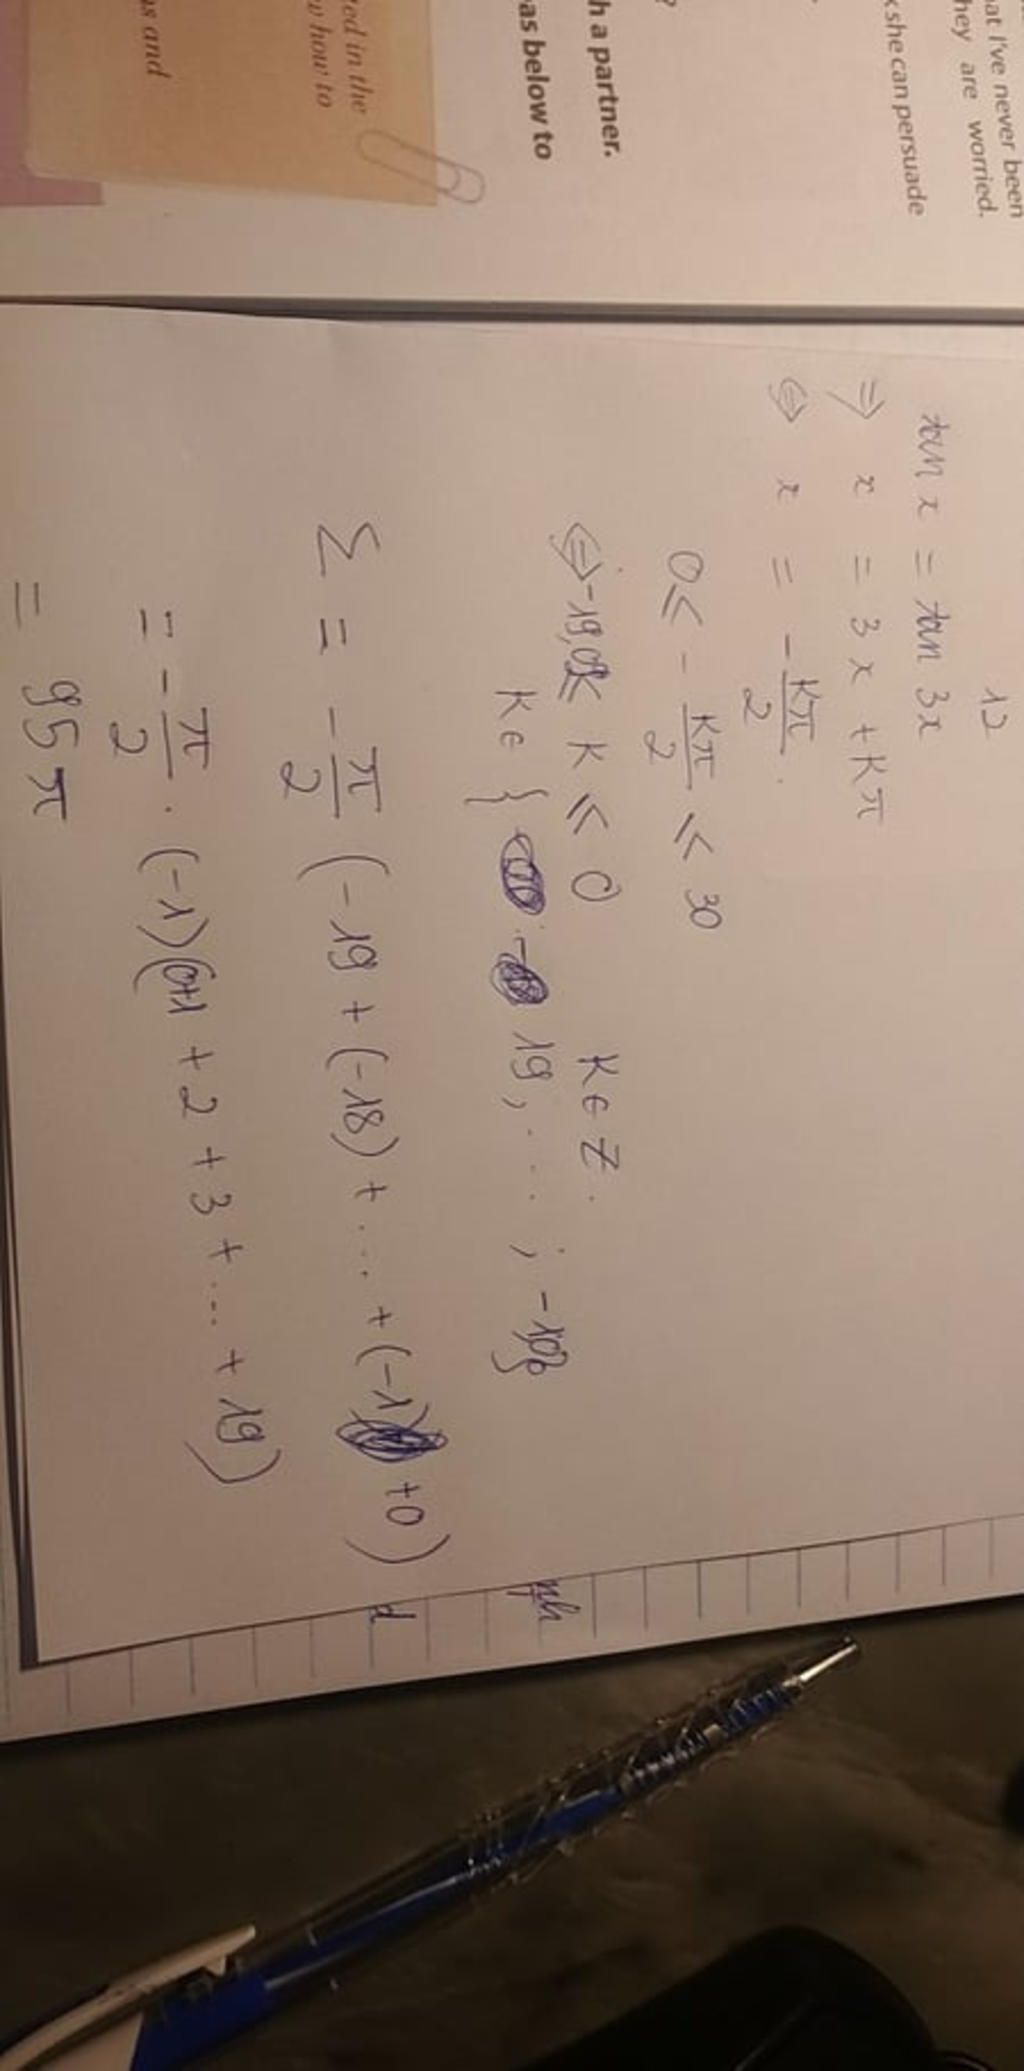 at I've never been
hey are worried.
she can persuade
?
h a partner.
as below to
ted in the
how to
us and
12
tan x = tan 3x
⇒ x = 3x + Kπ
⇔ x = -Kπ/2 .
0 ≤ -Kπ/2 ≤ 30
⇔ -19,09 ≤ K ≤ 0 K ∈ Z .
K ∈ { 19, . . . ;
Σ = -π/2 (-19 + (-18) + ... + (-1) + 0)
= -π/2 . (-1)(0+1 + 2 + 3 + ... + 19)
= 95π